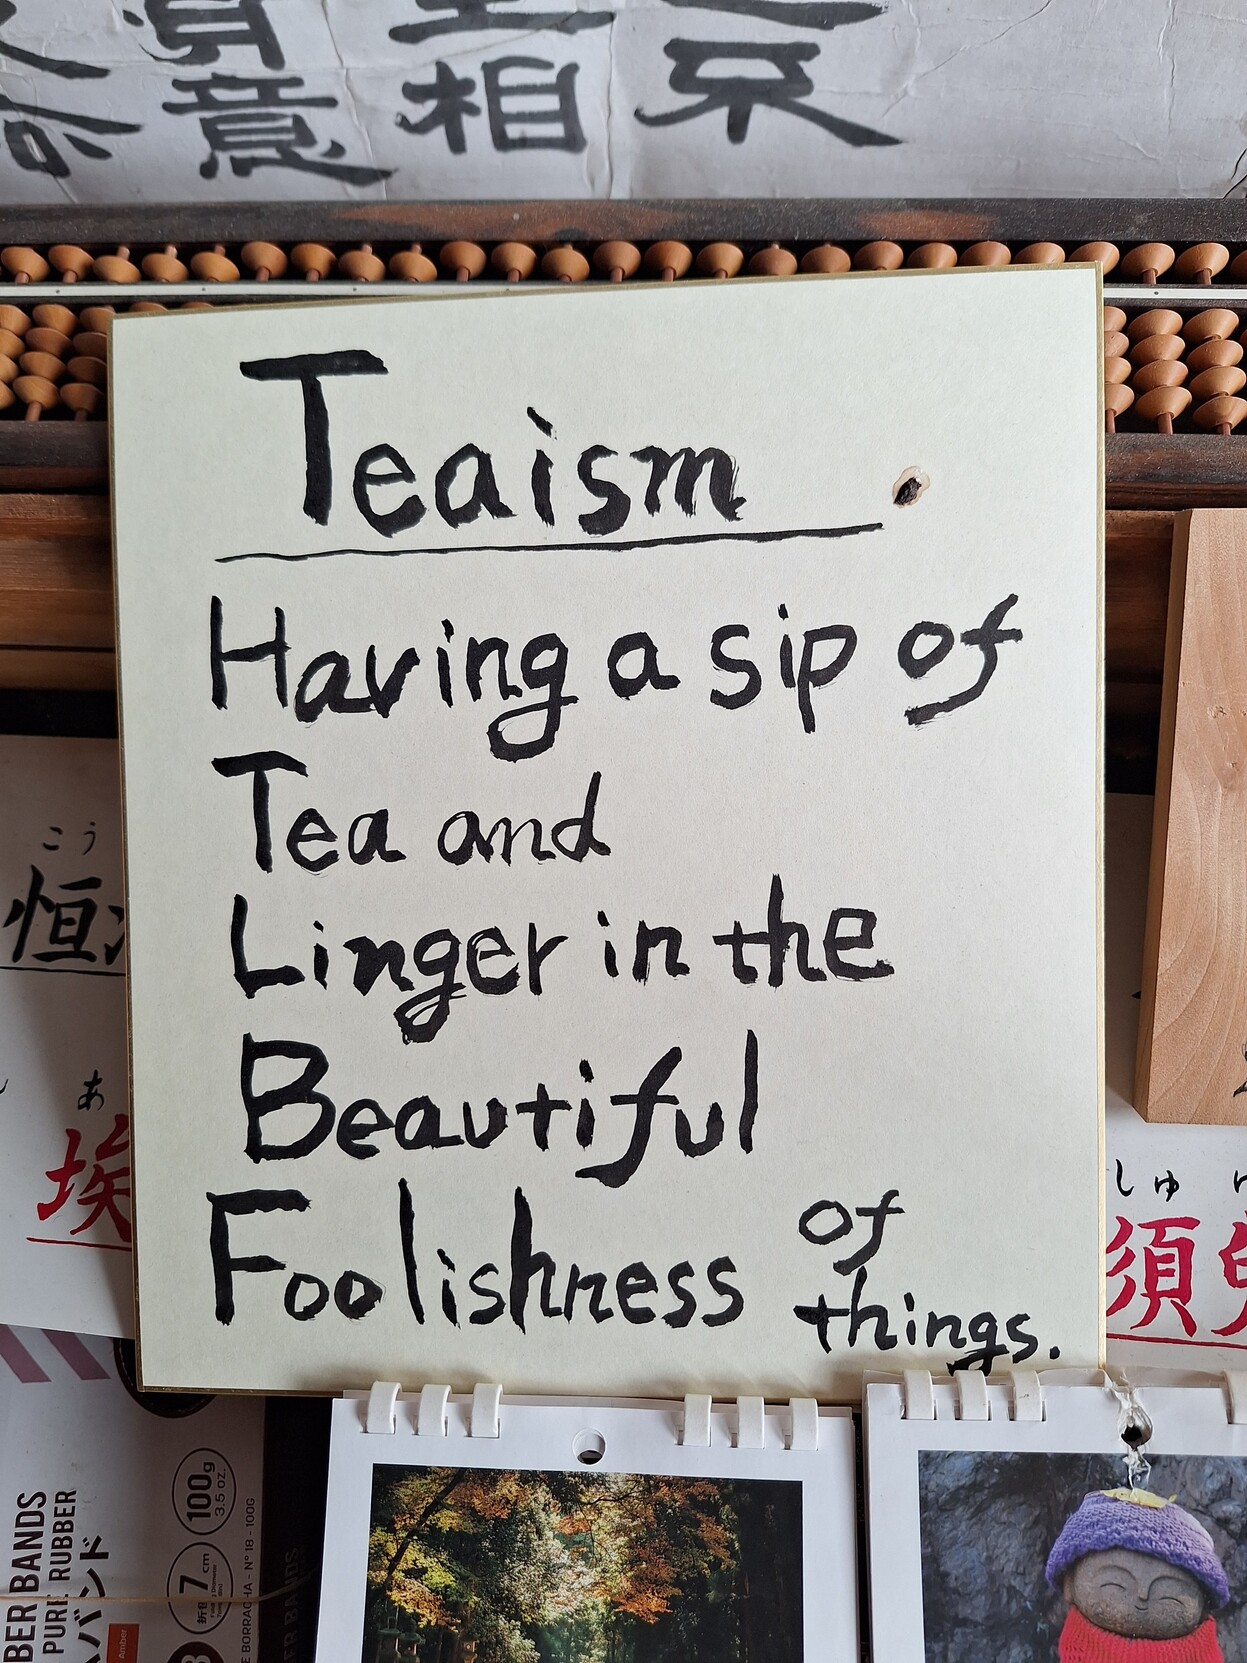 意 相
Teaism
Having a sip of
Tea and
Linger in the
Beautiful
Foolishness of
things.
こう
恒
あ
埃
しゅ
須
100g
3.5 OZ.
7cm
BER BANDS
PURE RUBBER
バンド
Amber
E BORRACHA - Nº 18 - 100G
ER BANDS